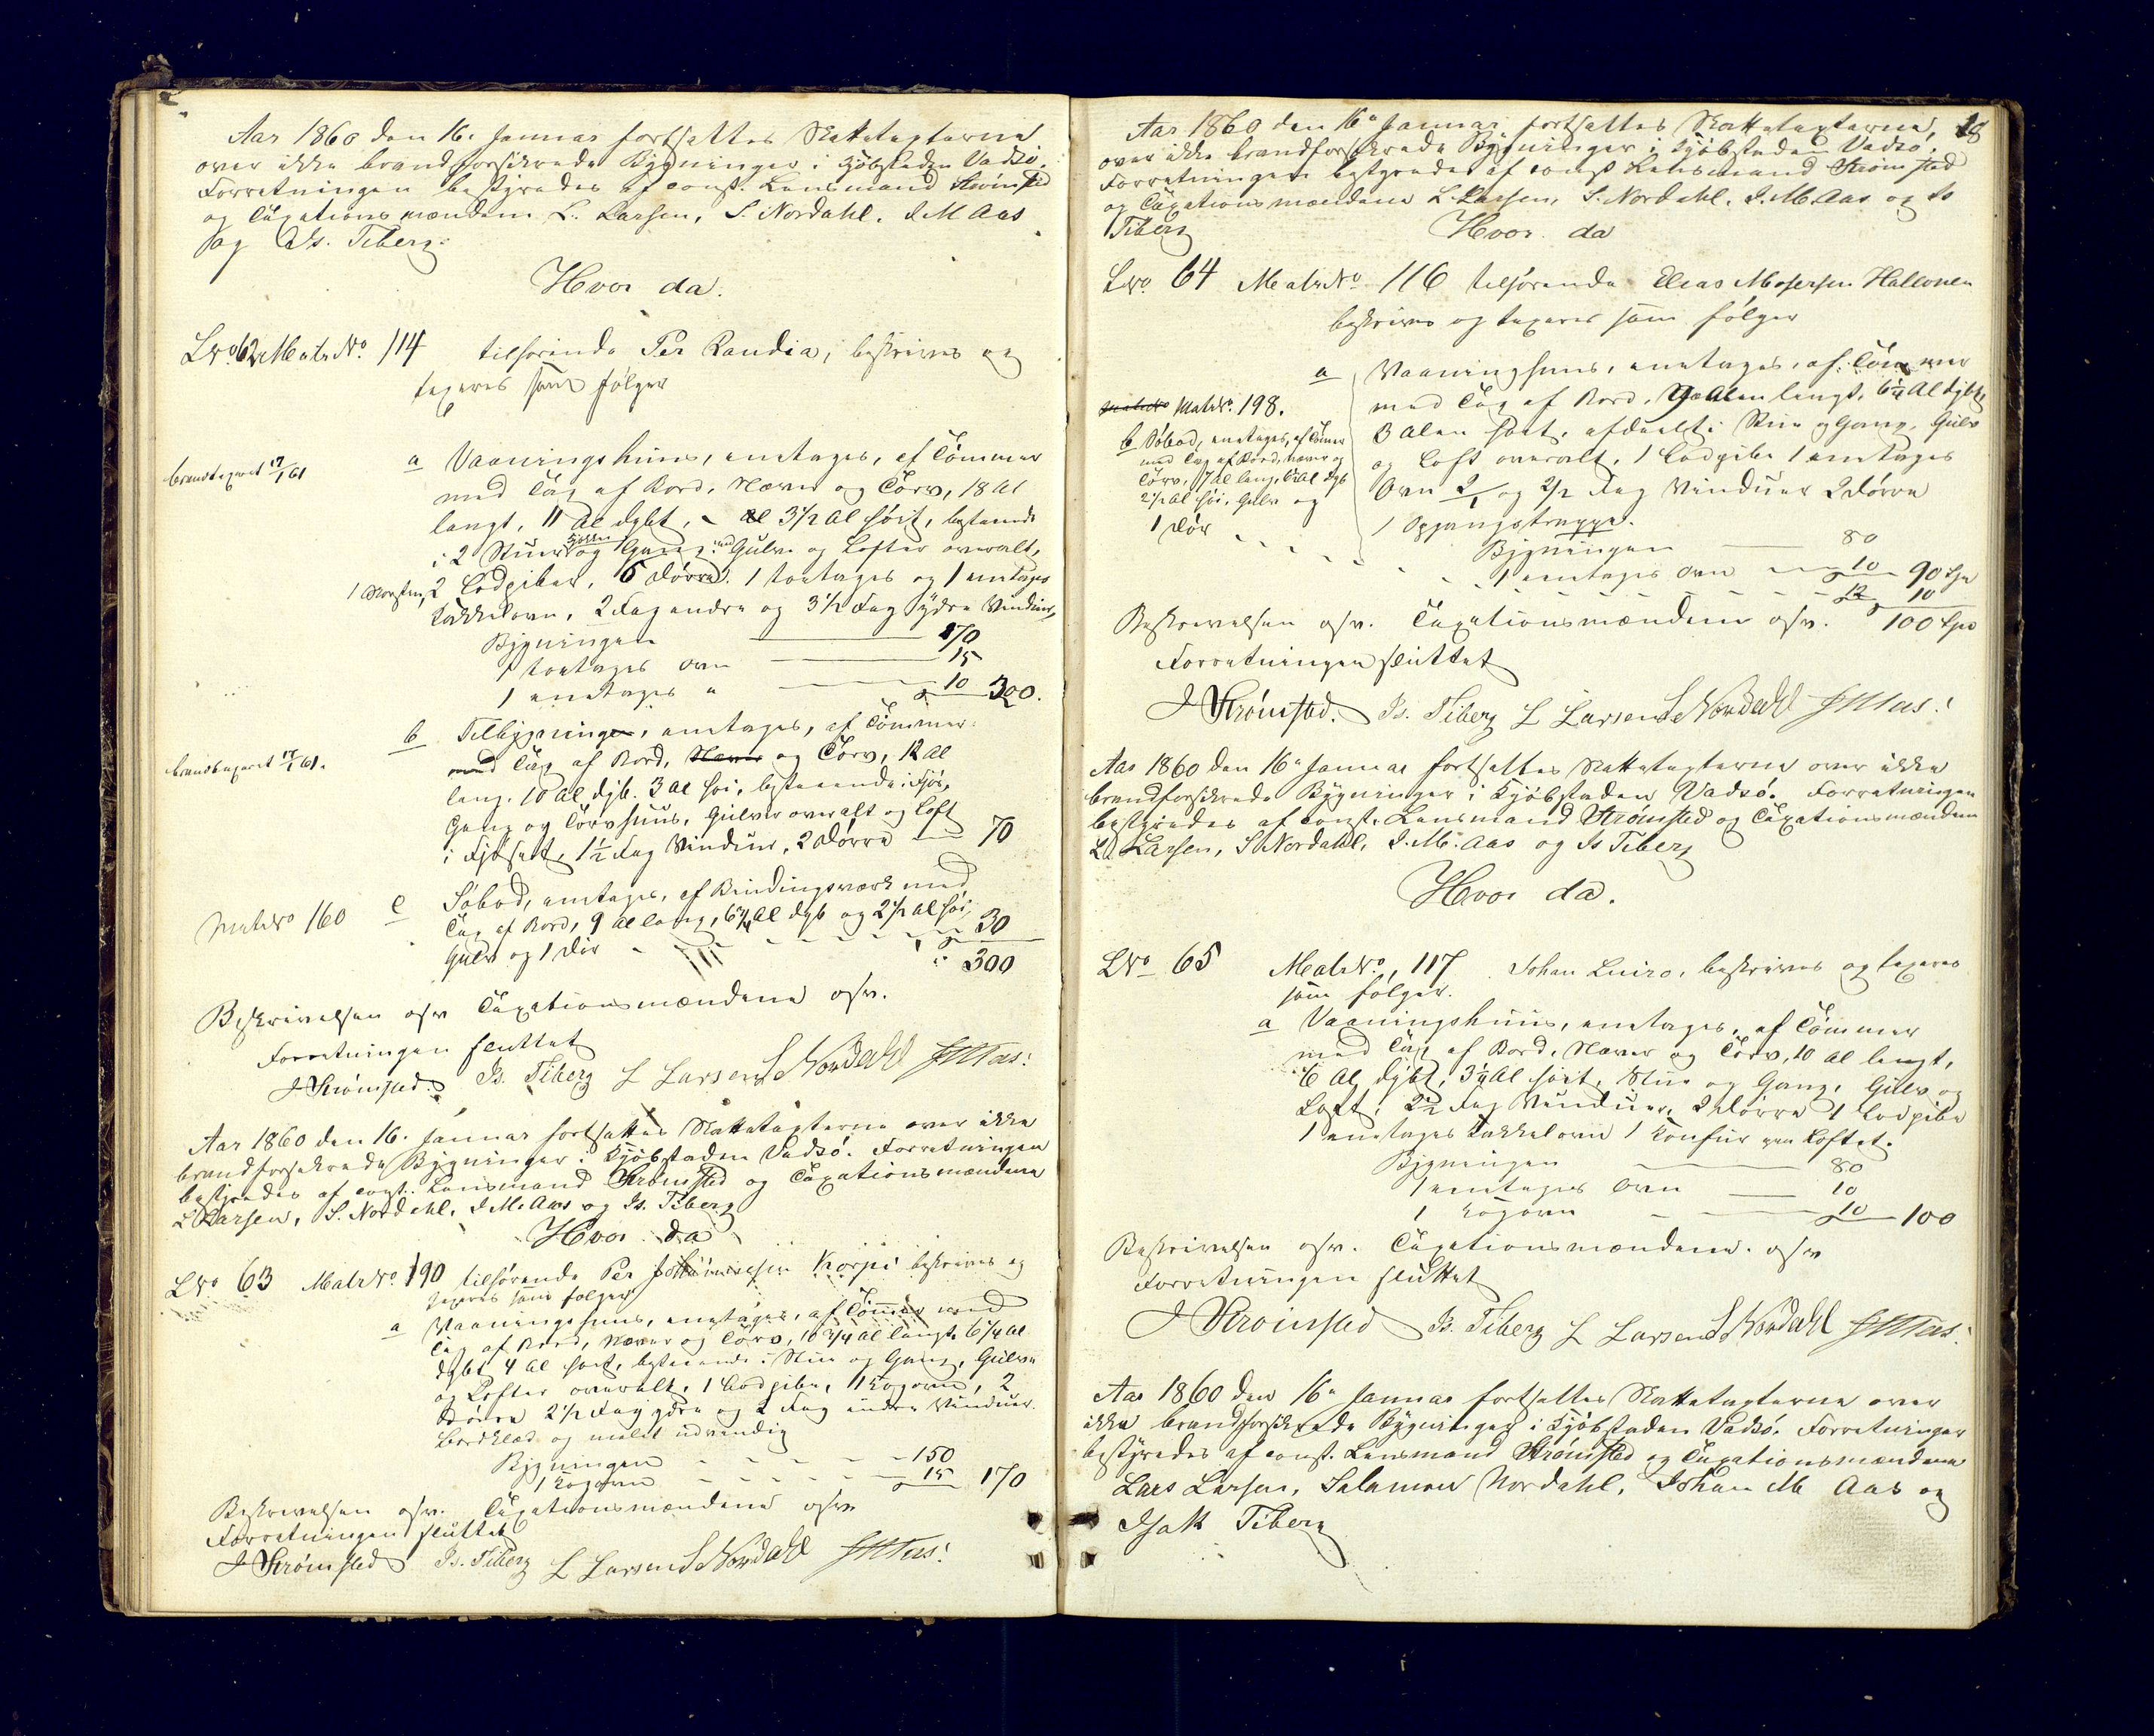 Aar 1860 den 16. Januar fortsattes Skattetaxterne
over ikke brandforsikrede Bygninger i Kjøbstaden Vadsø.
Forretningen bestyredes af const. Lensmand Strømsted
og Taxationsmændene L. Larsen, S. Nordahl, I M Aas
og Is. Tiberg.
Hvor da.
LNo 62 MatrNo. 114 tilhørende Per Randia, beskrives og
taxeres som følger
brandtaxeret 17/1 61
a Vaaningshuus, eenetages, af Tømmer
med Tag af Bord, Næver og Tørv, 18 Al
langt, 11 Al dybt, 3 1/2 Al høit, bestaaende
i 2 Stuer Kjøkken og Gang med Gulve og Lofter overalt,
1 Skorsten, 2 Lodpiber, 6 Dørre. 1 toetages og 1 eenetages
Kakkelovn, 2 Fag indre og 3 1/2 Fag ydre Vinduer,
Bygningen 170
1 toetages Ovn 15
1 eenetages " 10 300.
b Tilbygning, eenetages, af Tømmer
med Tag af Bord, Næver og Tørv, 12 Al
brandtaxeret 17/1 61.
lang. 10 Al dyb. 3 Al høi, bestaaende i Fjøs,
Gang og Tørvhuus, Gulver overalt og Loft
i Fjøset, 1 1/2 Fag Vinduer, 2 Dørre 70
MatrNo 160 c Søbod, eenetages, af Bindingsværk med
Tag af Bord, 9 Al lang, 6 3/4 Al dyb og 2 1/2 Al høi,
Gulv og 1 Dør 30
300
Beskrivelsen osv Taxationsmændene osv.
Forretningen sluttet
J Strømsted. Is. Tiberg L Larsen S Nordahl JMAas:
Aar 1860 den 16. Januar fortsattes Skattetaxterne over ikke
brandforsikrede Bygninger i Kjøbstaden Vadsø. Forretningen
bestyredes af const. Lensmand Strømsted og Taxationsmændene
L Larsen, S. Nordahl, I M. Aas og Is. Tiberg
Hvor da
LNo 63 MatrNo. 190 tilhørende Per Korpi beskrives og
taxeres som følger
a Vaaningshuus, eenetages, af Tømmer med
Tag af Bord, Næver og Tørv, 10 3/4 Al langt, 6 1/4 Al
dybt 4 Al høit, bestaaende i Stue og Gang, Gulve
og Lofter overalt, 1 Lodpibe, 1 Kogovn, 2
Dørre 2 1/2 Fag ydre og 2 Fag indre Vinduer.
Bordklæd og malet udvendig
Bygningen 150
1 Kogovn 15 170
Beskrivelsen osv. Taxationsmændene osv
Forretningen sluttet
J Strømsted Is. Tiberg L Larsen S Nordahl JMAas:
Aar 1860 den 16. Januar fortsattes Skattetaxterne, 18
over ikke brandforsikrede Bygninger i Kjøbstaden Vadsø.
Forretningen bestyredes af const Lensmand Strømsted
og Taxationsmændene L. Larsen, S. Nordahl, I. M. Aas og Is
Tiberg
Hvor da
LNo. 64 MatrNo. 116 tilhørende Elias Mosersen Hallonen
beskrives og taxeres som følger
a Vaaningshuus, eenetages, af Tømmer
med Tag af Bord. 9 Alen langt, 6 1/4 Al dybt,
3 Alen høit, afdeelt i Stue og Gang, Gulv
og Loft overalt, 1 Lodpibe 1 eenetages
Ovn 2/1 og 2/2 Fag Vinduer 2 Dørre
1 Opgangstrappe.
MatrNo MatrNo. 198.
b Søbod, eenetages, af Tømmer
med Tag af Bord, Næver og
Tørv, 7 Al lang, Al dyb
2 1/2 Al høi, Gulv og
1 Dør
Bygningen 80
1 eenetages Ovn 10 90 Spd
10
Beskrivelsen osv. Taxationsmændene osv. 100 Spd
Forretningen sluttet
J Strømsted. Is. Tiberg L Larsen S Nordahl JMAas:
Aar 1860 den 16. Januar fortsattes Skattetaxterne over ikke
brandforsikrede Bygninger i Kjøbstaden Vadsø. Forretningen
bestyredes af const. Lensmand Strømsted og Taxationsmændene
L. Larsen, S Nordahl, I. M. Aas og Is Tiberg
Hvor da.
LNo 65 MatrNo. 117 Johan Luiro, beskrives og taxeres
som følger.
a Vaaningshuus, eenetages, af Tømmer
med Tag af Bord, Næver og Tørv, 10 Al langt,
6 Al dybt, 3 1/4 Al høit, Stue og Gang, Gulv og
Loft; 2 1/2 Fag Vinduer, 2 Dørre 1 Lodpibe
1 eenetages Kakkelovn 1 Komfur paa Loftet.
Bygningen 80
1 eenetages Ovn 10
1 Kogovn 10 100
Beskrivelsen osv. Taxationsmændene. osv
Forretningen sluttet
J Strømsted Is. Tiberg L Larsen S Nordahl JMAas:
Aar 1860 den 16. Januar fortsattes Skattetaxterne over
ikke brandforsikrede Bygninger i Kjøbstaden Vadsø. Forretningen
bestyredes af const. Lensmand Strømsted og Taxationsmændene
Lars Larsen, Salamon Nordahl, Johan M Aas og
Isak Tiberg